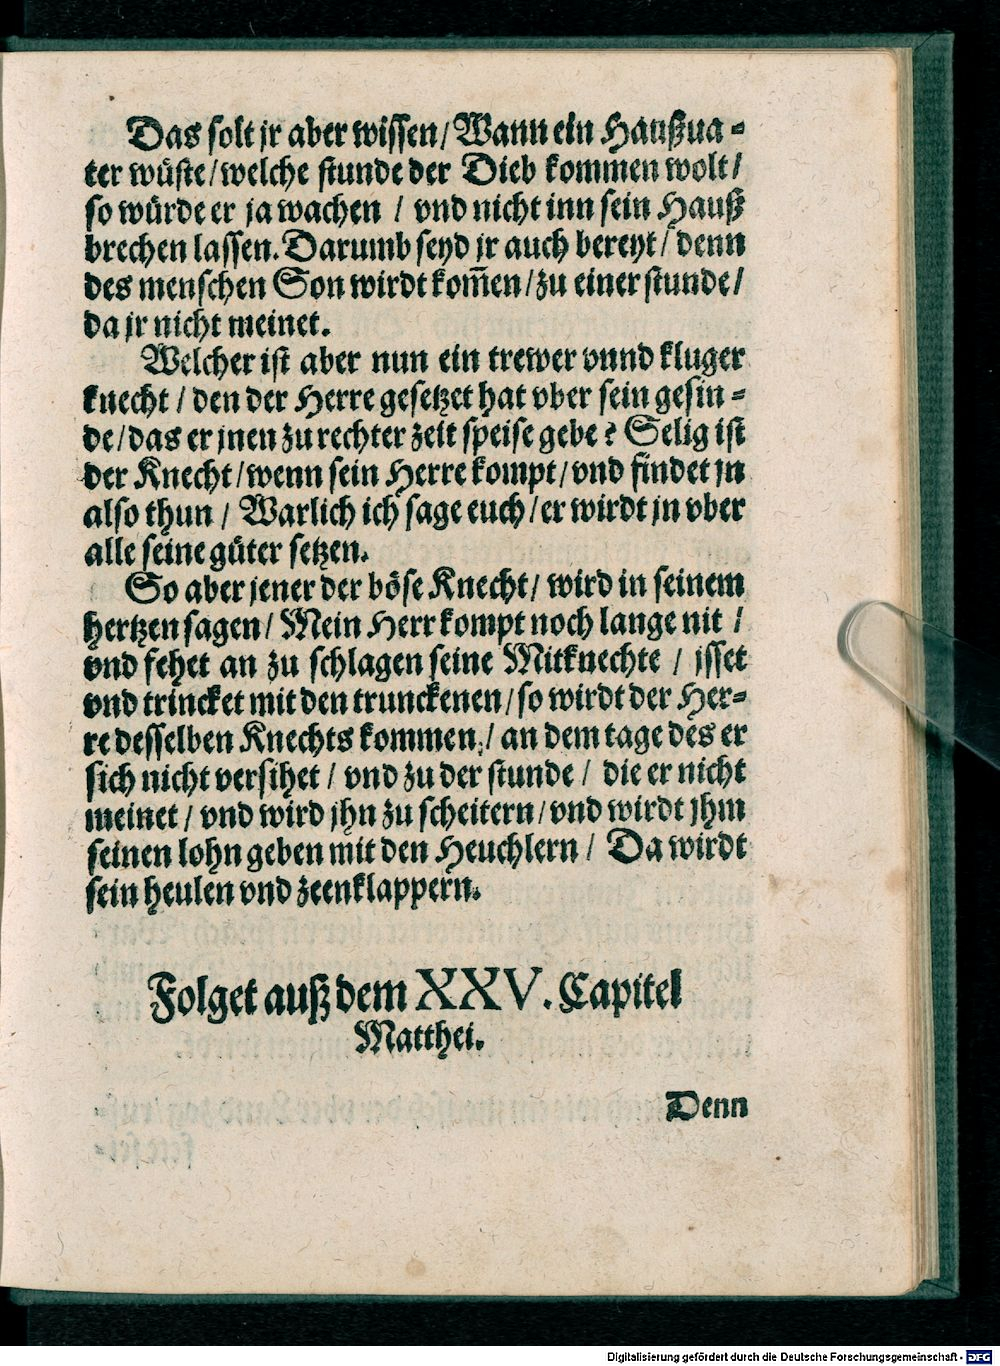 Das solt jr aber wissen / Wann ein Haußua-
ter wüste / welche stunde der Dieb kommen wolt /
so würde er ja wachen / vnd nicht inn sein Hauß
brechen lassen. Darumb seyd jr auch bereyt / denn
des menschen Son wirdt kom̃en / zu einer stunde /
da jr nicht meinet.
Welcher ist aber nun ein trewer vnnd kluger
knecht / den der Herre gesetzet hat vber sein gesin-
de / das er jnen zu rechter zeit speise gebe? Selig ist
der Knecht / wenn sein Herre kompt / vnd findet jn
also thun / Warlich ich sage euch / er wirdt jn vber
alle seine güter setzen.
So aber jener der böse Knecht / wird in seinem
hertzen sagen / Mein Herr kompt noch lange nit /
vnd fehet an zu schlagen seine Mitknechte / isset
vnd trincket mit den trunckenen / so wirdt der Her-
re desselben Knechts kommen / an dem tage des er
sich nicht versihet / vnd zu der stunde / die er nicht
meinet / vnd wird jhn zu scheitern / vnd wirdt jhm
seinen lohn geben mit den Heuchlern / Da wirdt
sein heulen vnd zeenklappern.
Folget auß dem XXV. Capitel
Matthei.
Denn
Digitalisierung gefördert durch die Deutsche Forschungsgemeinschaft - DFG